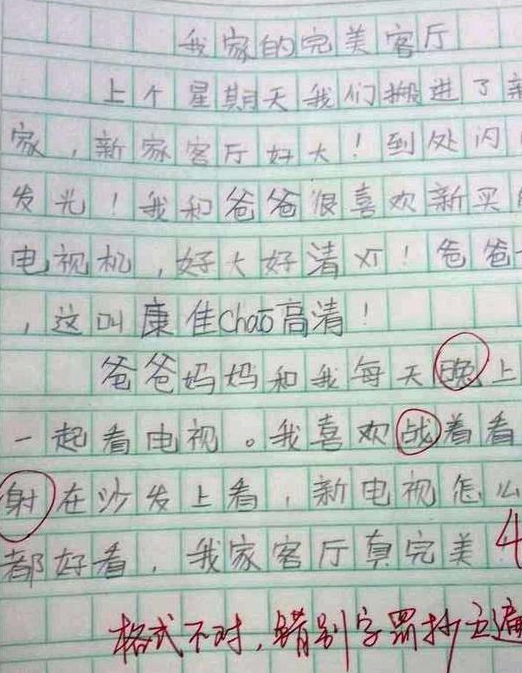 我家的完美客厅
上个星期天我们搬进了新
家，新家客厅好大！到处闪
发光！我和爸爸很喜欢新买
电视机，好大好清！爸爸
，这叫康佳Chao高清！
爸爸妈妈和我每天晚上
一起看电视。我喜欢战着看
射在沙发上看，新电视怎么
都好看，我家客厅真完美
4
格式不对，错别字罚抄五遍